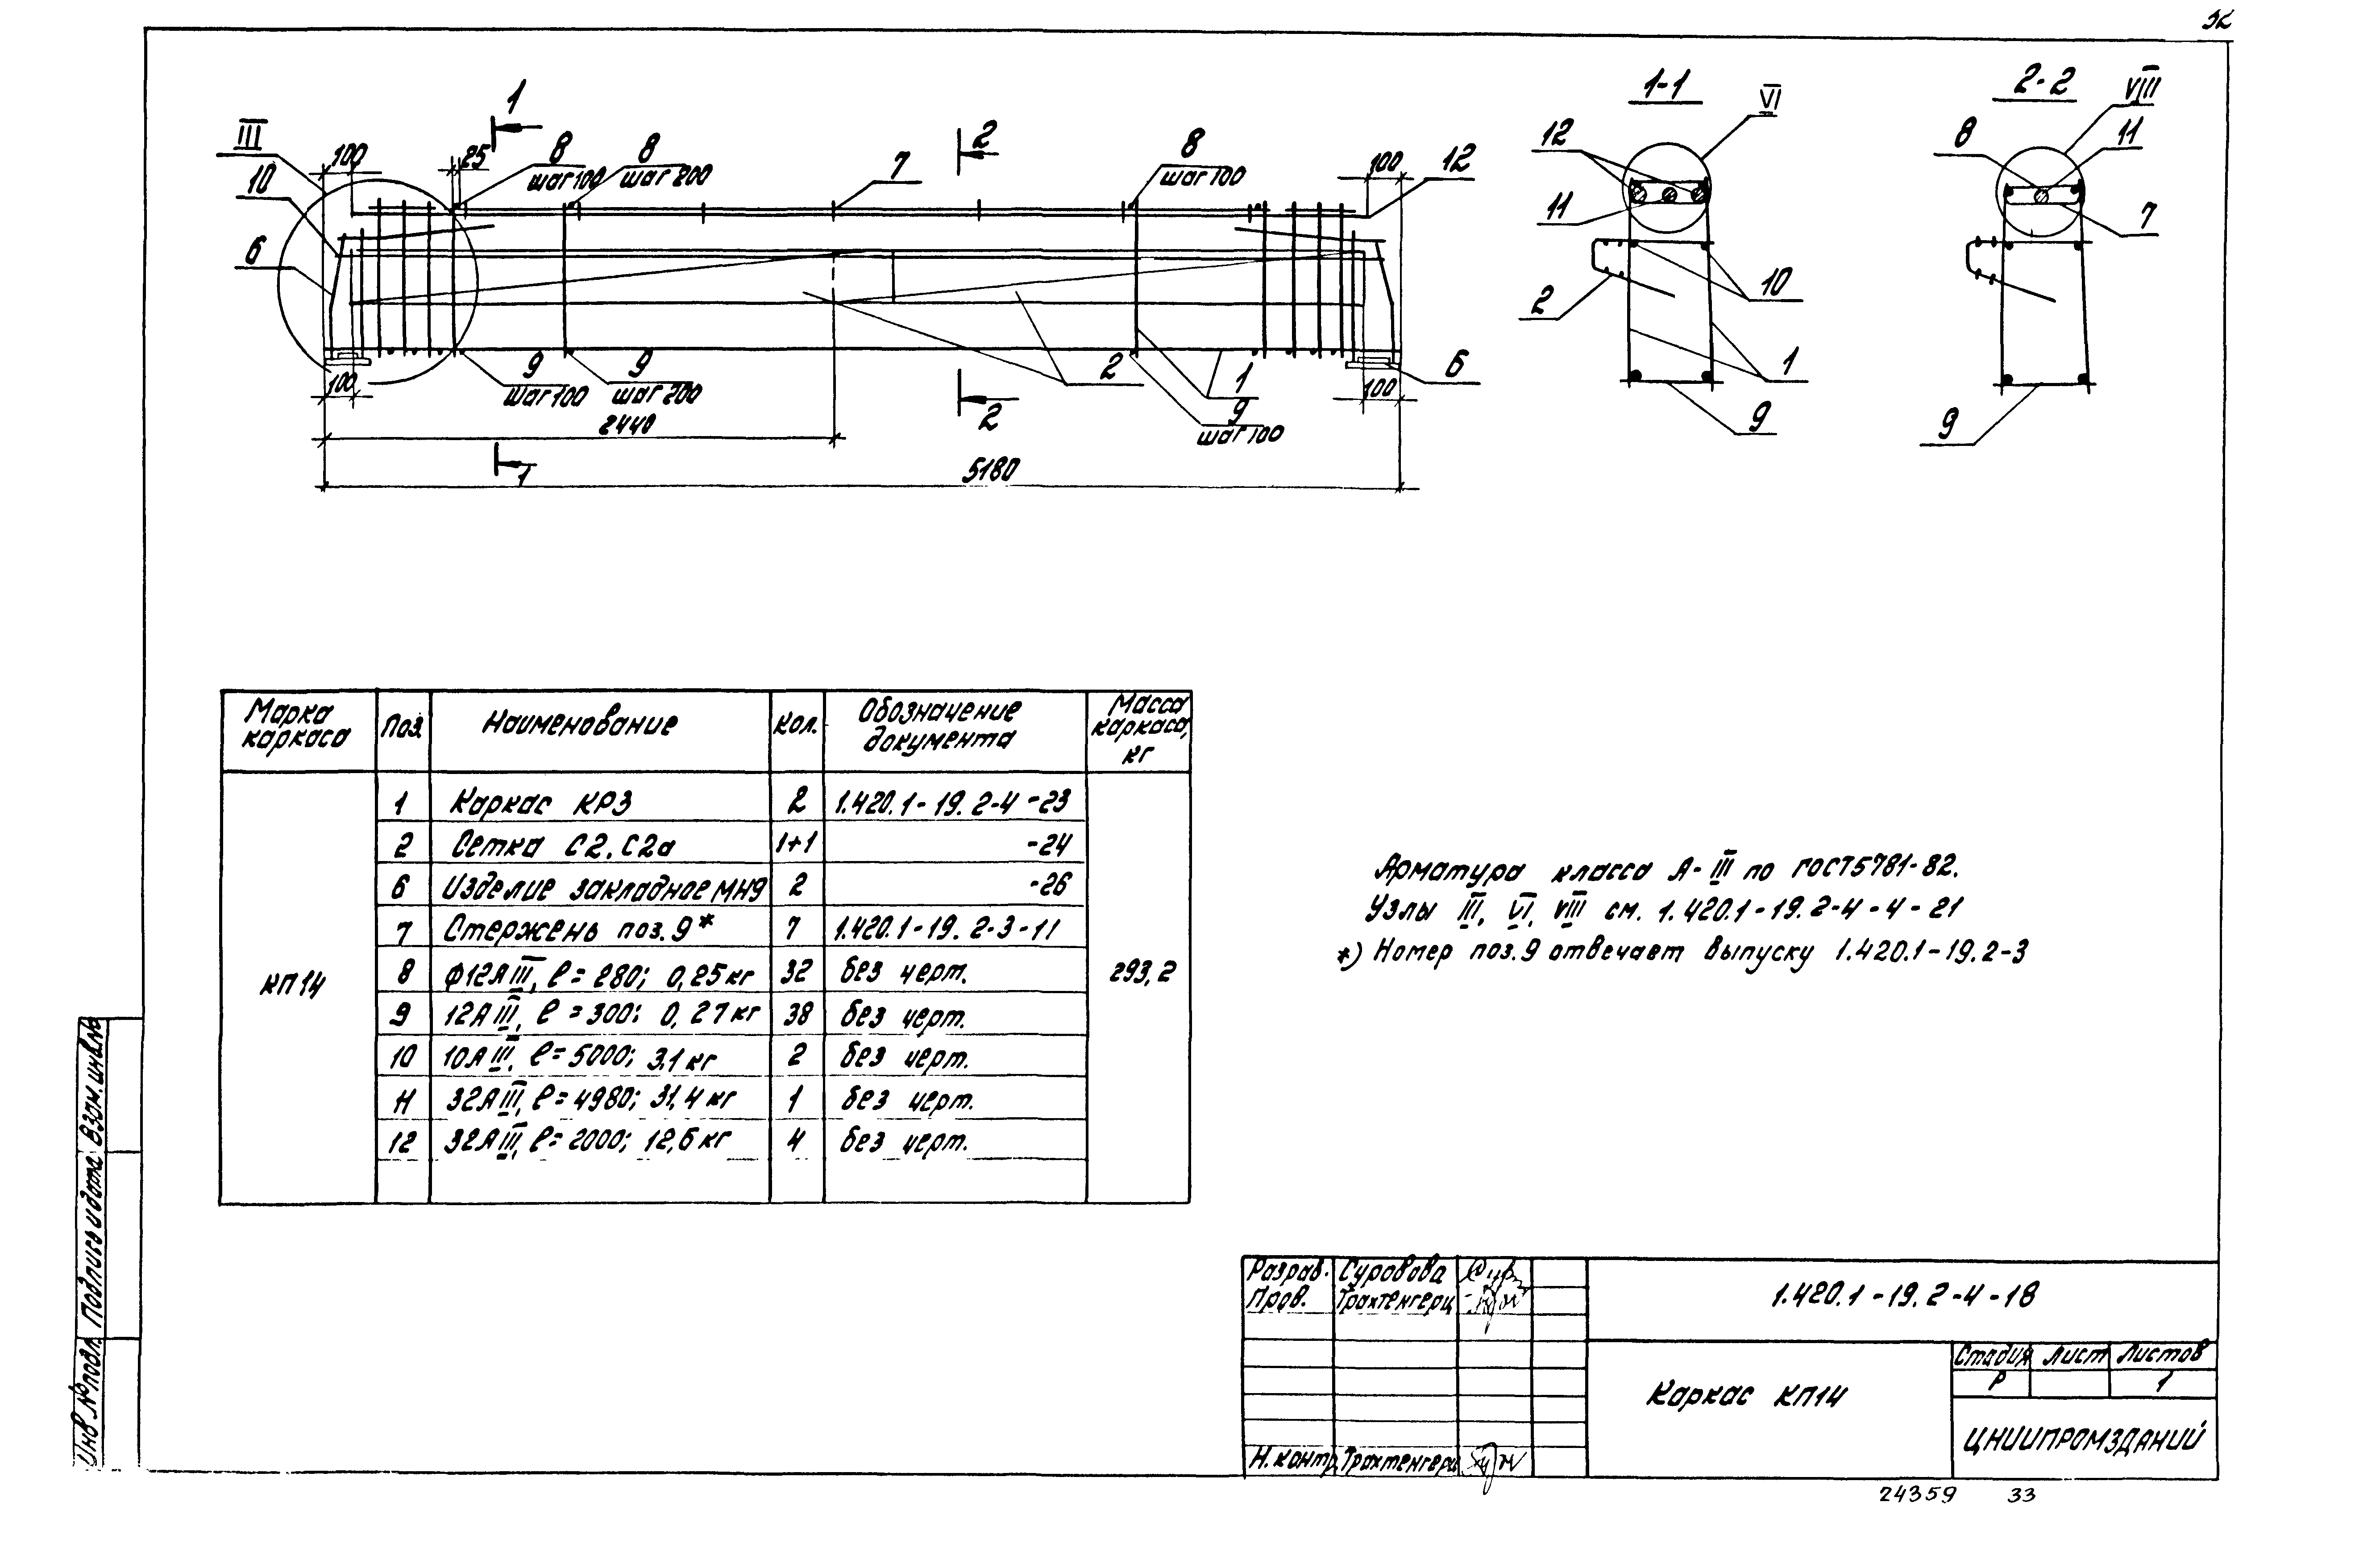 32
III
1
2
1-1
VI
2-2
VIII
100
25
8
шаг 100
8
шаг 200
7
8
шаг 100
100
12
12
11
8
11
7
10
6
10
2
1
9
9
100
9
шаг 100
9
шаг 200
2
1
9
шаг 100
6
100
2440
2
1
5180
Марка каркаса
Поз.
Наименование
Кол.
Обозначение документа
Масса каркаса, кг
КП14
293,2
1 Каркас КР3 2 1.420.1-19.2-4-23
2 Сетка С2, С2а 1+1 -24
6 Изделие закладное МН9 2 -26
7 Стержень поз.9* 7 1.420.1-19.2-3-11
8 ф12АIII, ℓ=280; 0,25кг 32 без черт.
9 12АIII, ℓ=300; 0,27кг 38 без черт.
10 10АIII, ℓ=5000; 3,1кг 2 без черт.
11 32АIII, ℓ=4980; 31,4кг 1 без черт.
12 32АIII, ℓ=2000; 12,6кг 4 без черт.
Арматура класса А-III по ГОСТ5781-82.
Узлы III, VI, VIII см. 1.420.1-19.2-4-4-21
*) Номер поз.9 отвечает выпуску 1.420.1-19.2-3
Инв.№подл. Подпись и дата Взам.инв.№
Разраб. Суровова
Пров. Трахтенгерц
Н.контр. Трахтенгерц
1.420.1-19.2-4-18
Каркас КП14
Стадия Лист Листов
Р 1
ЦНИИПРОМЗДАНИЙ
24359 33